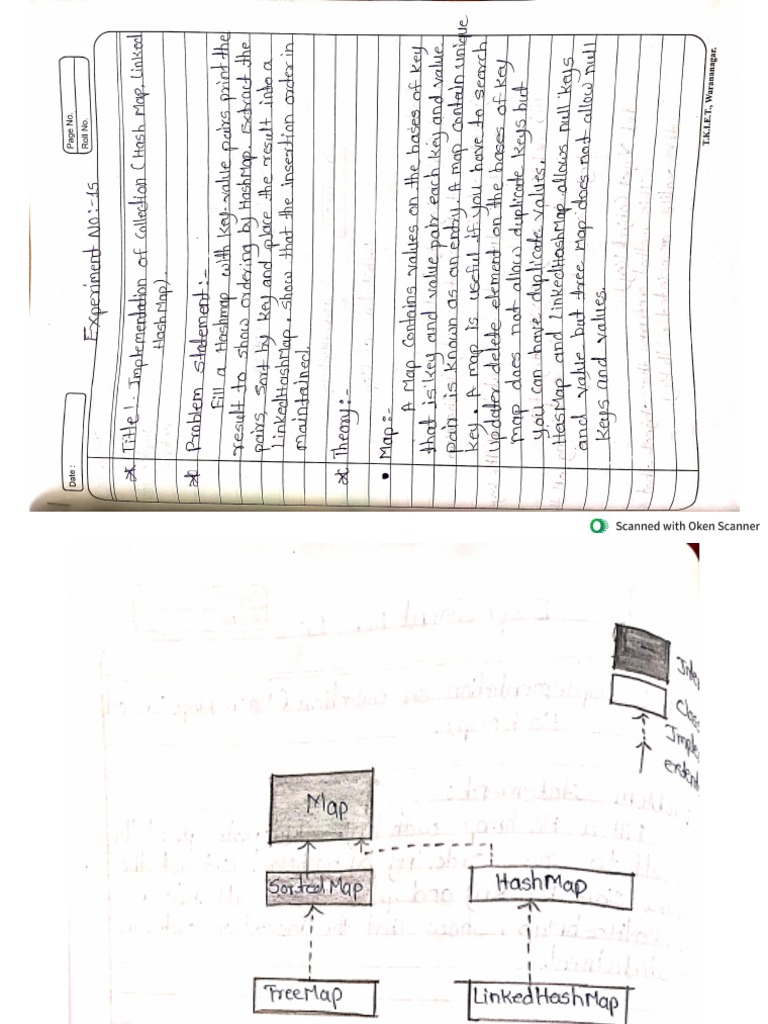 Page No.
Roll No.
Date :
Experiment No:-15
* Title!- Implementation of Collection (Hash Map, Linked
Hash Map).
* Problem statement:-
Fill a Hashmap with key-value pairs print the
result to show ordering by HashMap. Extract the
pairs, sort by key and place the result into a
LinkedHashMap. Show that the insertion order in
maintained.
* Theory:-
• Map:-
A Map contains values on the bases of key
that is key and value pair each key and value
pair is known as an entry. A map contain unique
key. A map is useful if you have to search
update, delete element on the bases of key
map does not allow duplicate keys but
you can have duplicate values.
HasMap and LinkedHashMap allows null keys
and value but tree Map does not allow null
keys and values.
T.K.I.E.T., Warananagar.
Scanned with Oken Scanner
Inte
Class
Imple
extent
Map
Sorted Map
HashMap
TreeMap
LinkedHashMap